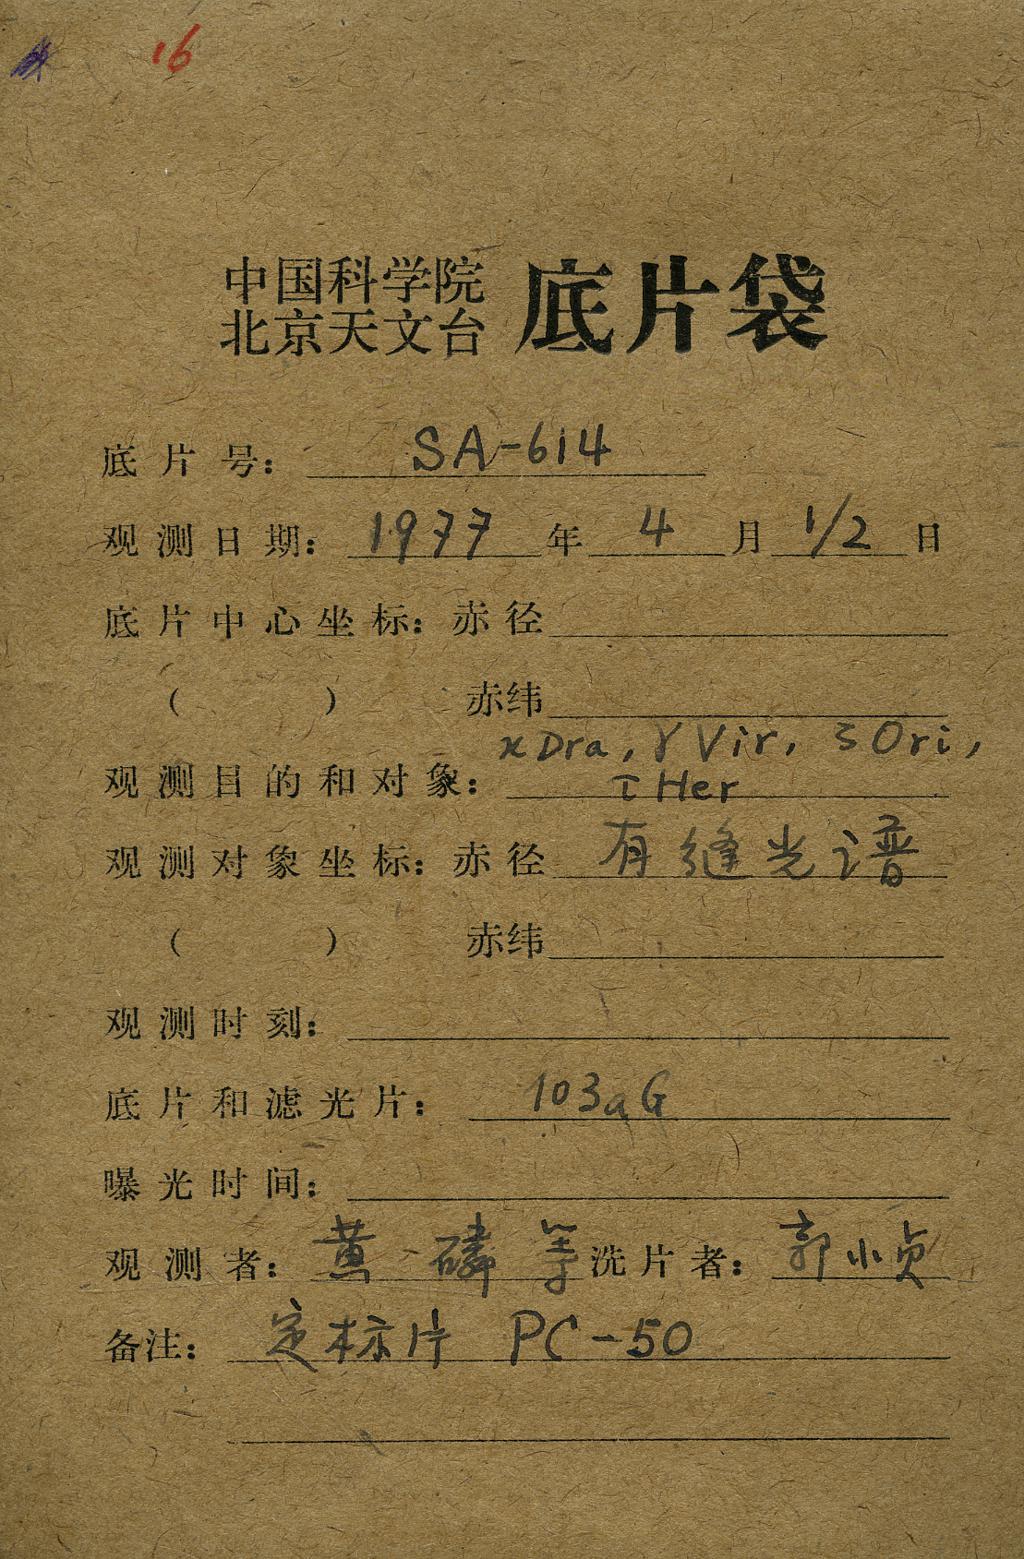 16
中国科学院
北京天文台 底片袋
底片号: SA-614
观测日期: 1977年 4月 1/2日
底片中心坐标: 赤径
( ) 赤纬
κ Dra, γ Vir, ζ Ori,
观测目的和对象: τ Her
观测对象坐标: 赤径 有缝光谱
( ) 赤纬
观测时刻:
底片和滤光片: 103aG
曝光时间:
观测者: 黄磷等 洗片者: 郭小贞
备注: 定标片 PC-50